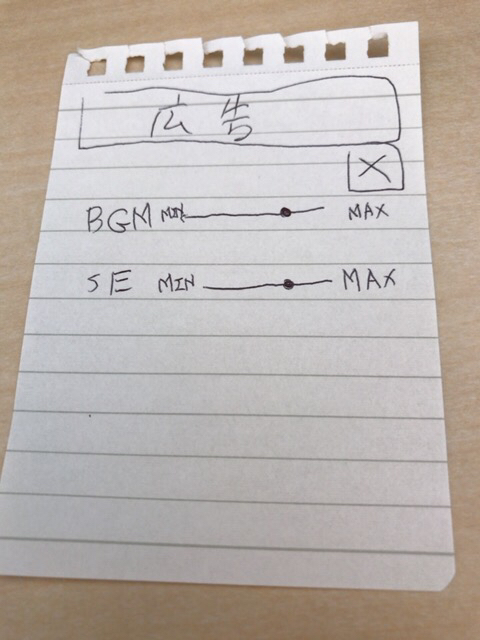 広告
X
BGM MIN MAX
SE MIN MAX